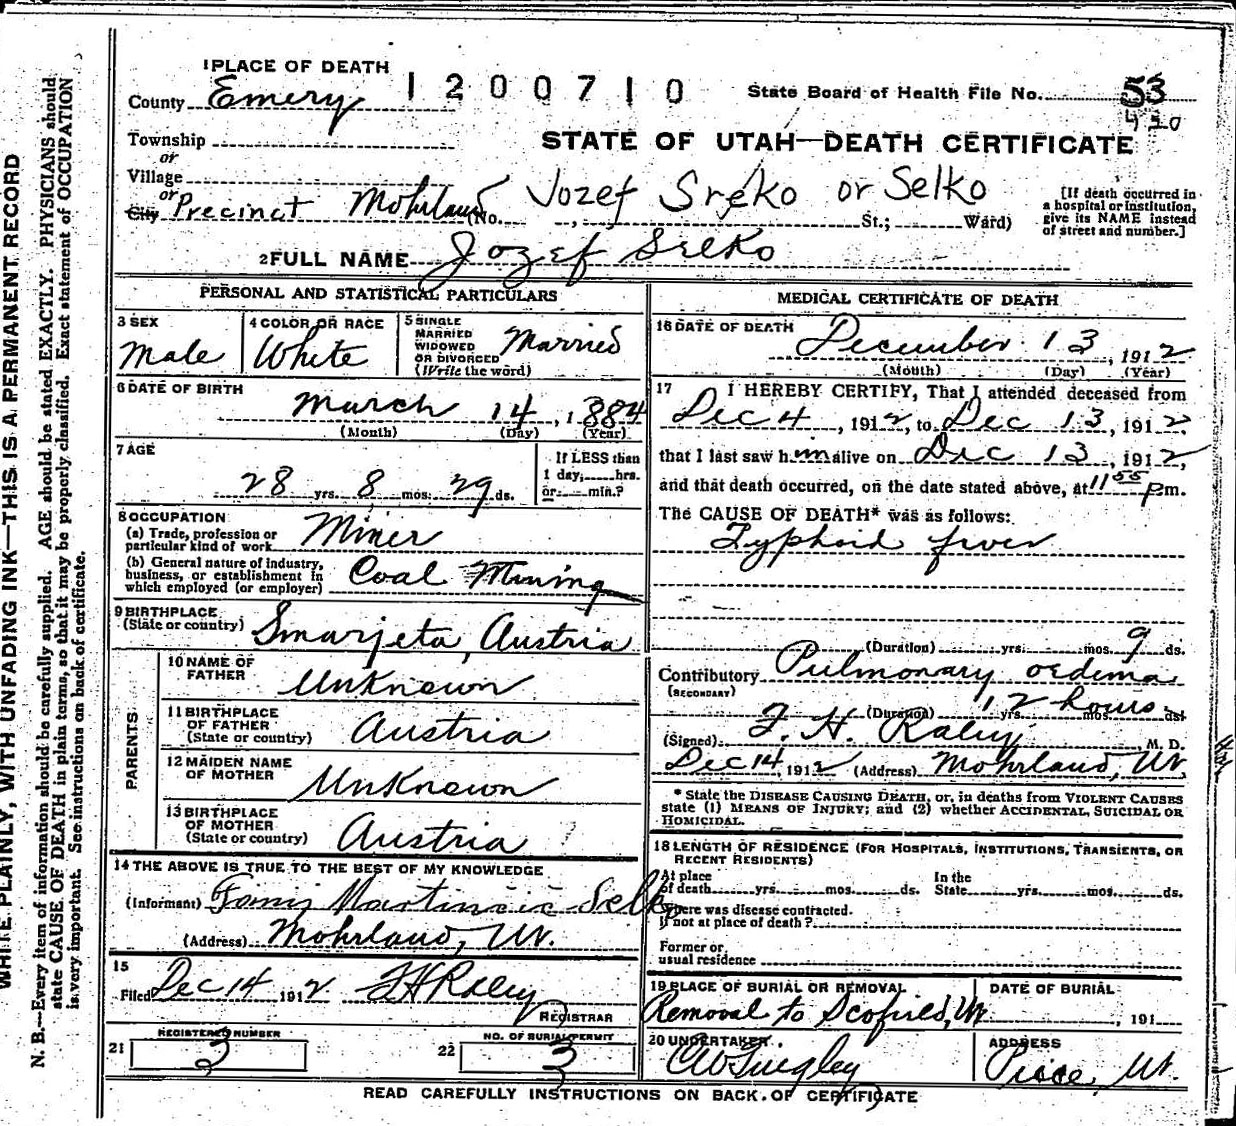 1 PLACE OF DEATH
1200710
State Board of Health File No. 53
County Emery
STATE OF UTAH—DEATH CERTIFICATE
Township
or
Village
or
City Precinct Mohrland (No. , St.; Ward)
Jozef Sreko or Selko
[If death occurred in a hospital or institution, give its NAME instead of street and number.]
2 FULL NAME Jozef Srlko
PERSONAL AND STATISTICAL PARTICULARS
3 SEX
Male
4 COLOR OR RACE
White
5 SINGLE MARRIED WIDOWED OR DIVORCED (Write the word)
Married
6 DATE OF BIRTH
March 14, 1884
(Month) (Day) (Year)
7 AGE
28 yrs. 8 mos. 29 ds.
If LESS than 1 day, hrs. or min.?
8 OCCUPATION
(a) Trade, profession or particular kind of work Miner
(b) General nature of industry, business, or establishment in which employed (or employer) Coal Mining
9 BIRTHPLACE
(State or country) Smarjeta, Austria
PARENTS
10 NAME OF FATHER Unknown
11 BIRTHPLACE OF FATHER (State or country) Austria
12 MAIDEN NAME OF MOTHER Unknown
13 BIRTHPLACE OF MOTHER (State or country) Austria
14 THE ABOVE IS TRUE TO THE BEST OF MY KNOWLEDGE
(Informant) Martincic Selko
(Address) Mohrland, Ut.
15
Filed Dec 14 1912 F H Raley
REGISTRAR
21 REGISTERED NUMBER 3
22 NO. OF BURIAL PERMIT 3
MEDICAL CERTIFICATE OF DEATH
16 DATE OF DEATH
December 13, 1912
(Month) (Day) (Year)
17 I HEREBY CERTIFY, That I attended deceased from
Dec 4, 1912, to Dec 13, 1912,
that I last saw him alive on Dec 13, 1912,
and that death occurred, on the date stated above, at 11 55 p m.
The CAUSE OF DEATH* was as follows:
Typhoid fever
(Duration) yrs. mos. 9 ds.
Contributory Pulmonary oedema
(SECONDARY)
(Duration) yrs. mos. ds. 12 hours
(Signed) F. H. Raley, M. D.
Dec 14, 1912 (Address) Mohrland, Ut.
* State the DISEASE CAUSING DEATH, or, in deaths from VIOLENT CAUSES
state (1) MEANS OF INJURY; and (2) whether ACCIDENTAL, SUICIDAL OR
HOMICIDAL.
18 LENGTH OF RESIDENCE (FOR HOSPITALS, INSTITUTIONS, TRANSIENTS, OR
RECENT RESIDENTS)
At place of death yrs. mos. ds. In the State yrs. mos. ds.
Where was disease contracted.
If not at place of death?
Former or
usual residence
19 PLACE OF BURIAL OR REMOVAL
Removal to Scofield, Ut
DATE OF BURIAL
, 191
20 UNDERTAKER
ADDRESS
Price, Ut.
READ CAREFULLY INSTRUCTIONS ON BACK OF CERTIFICATE
WRITE PLAINLY, WITH UNFADING INK—THIS IS A PERMANENT RECORD
N. B.—Every item of information should be carefully supplied. AGE should be stated EXACTLY. PHYSICIANS should
state CAUSE OF DEATH in plain terms, so that it may be properly classified. Exact statement of OCCUPATION
is very important. See instructions on back of certificate.